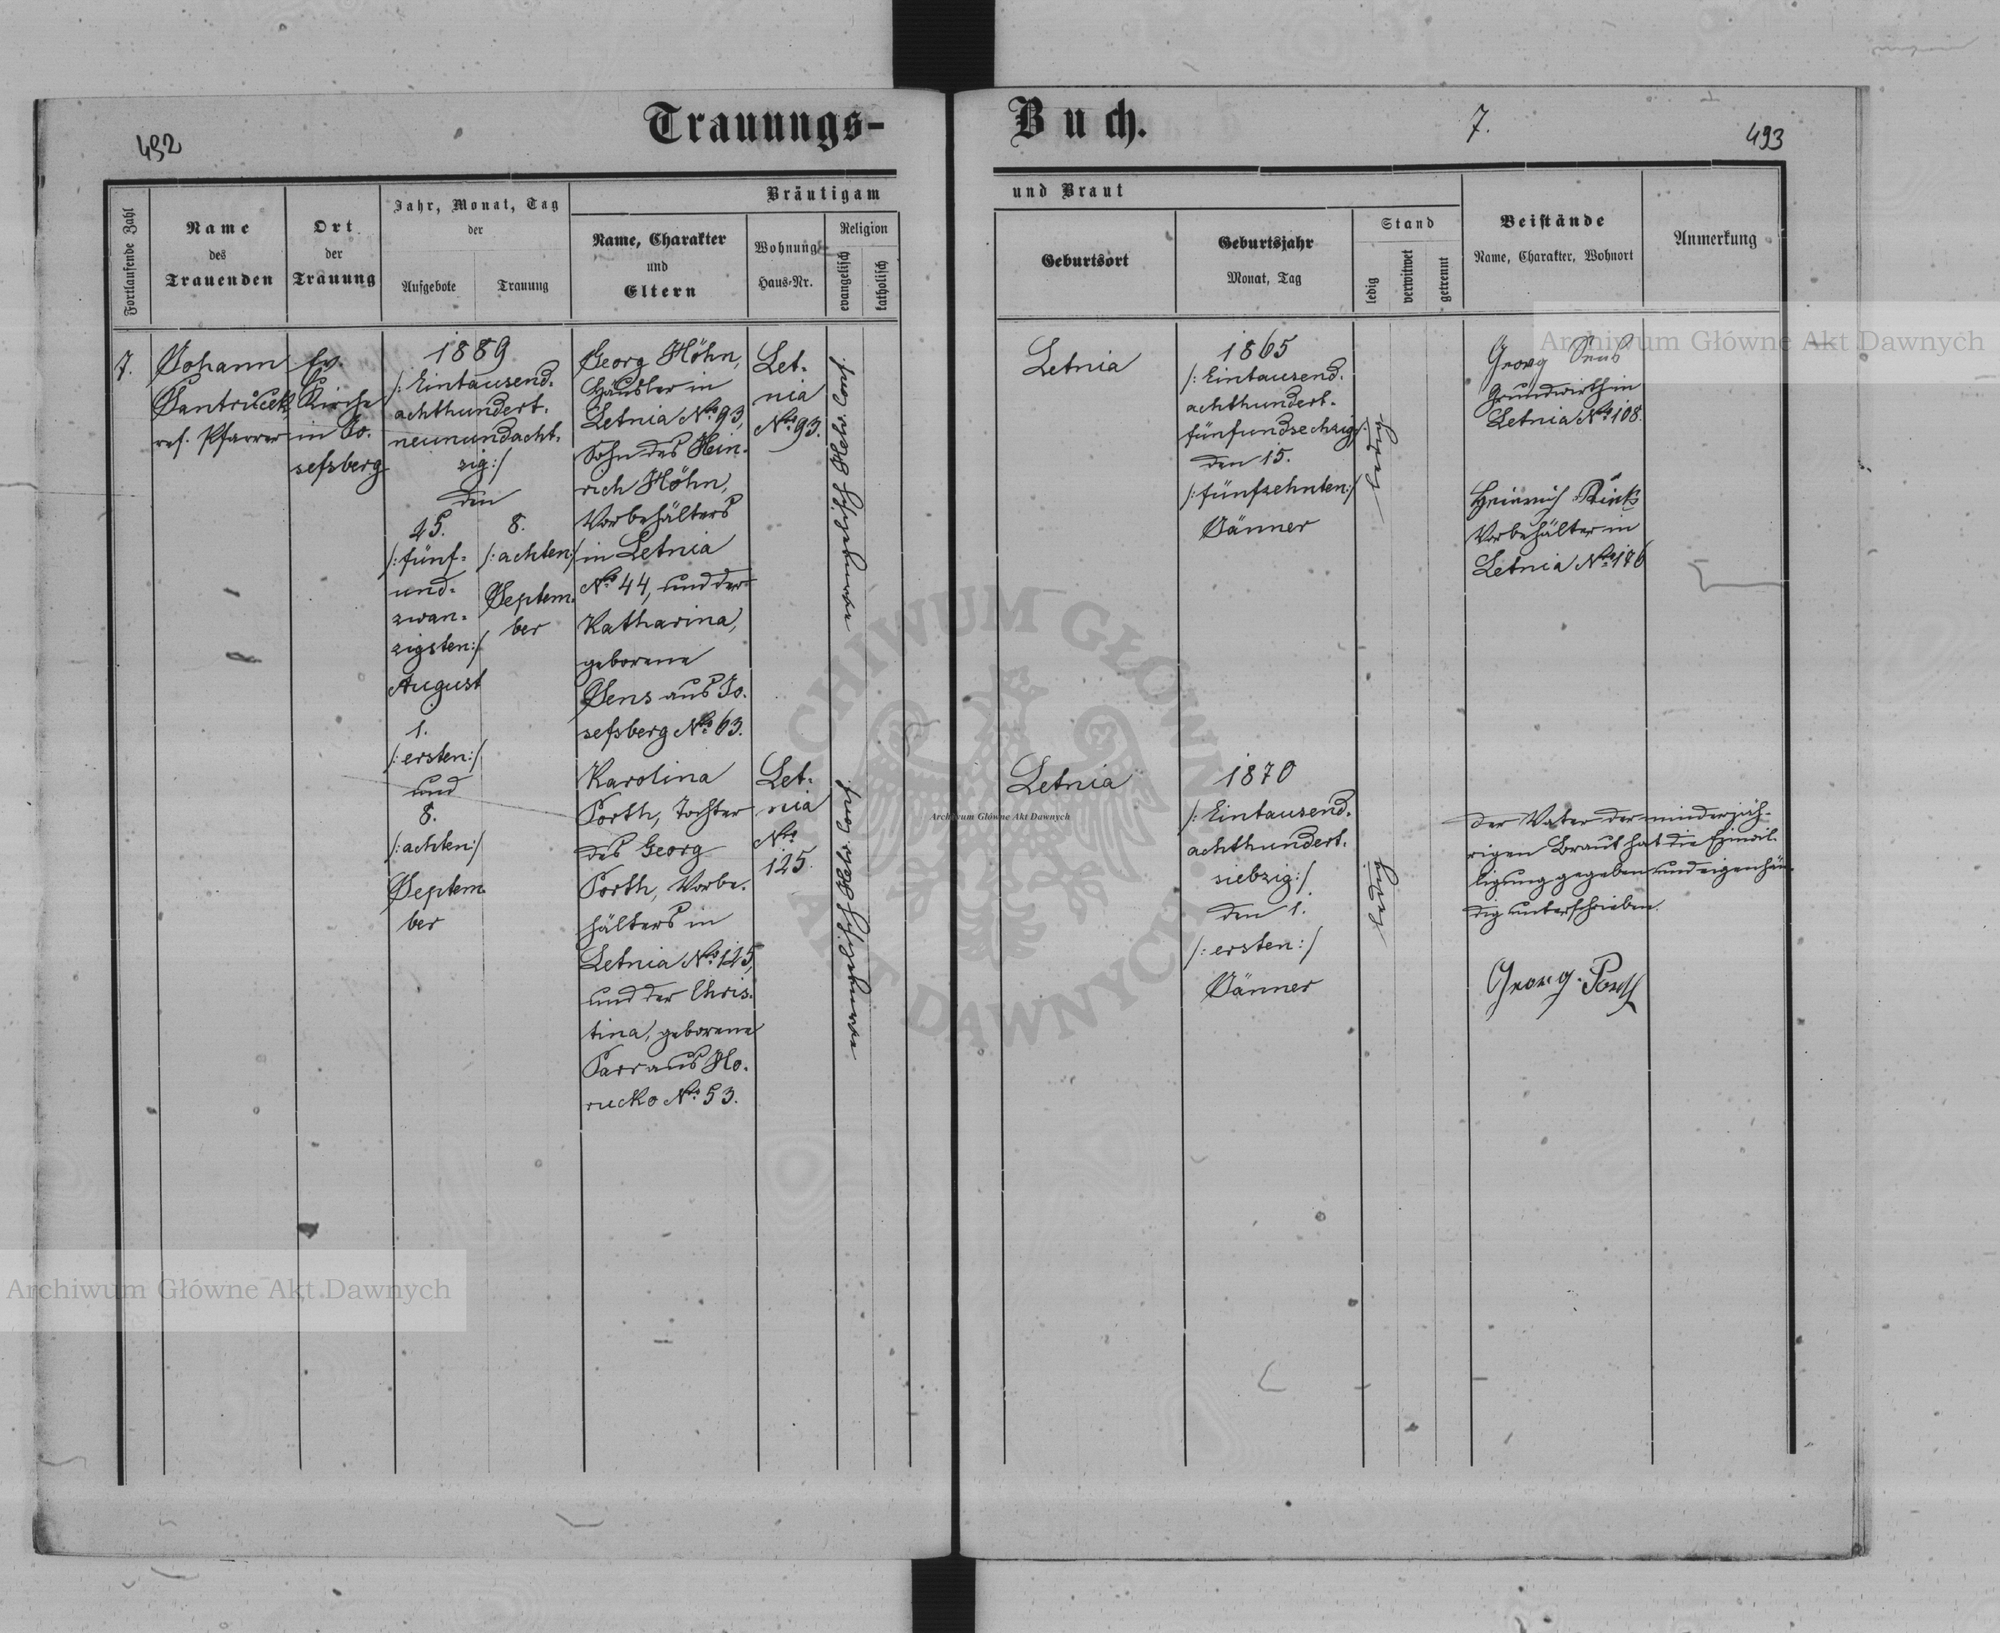 492
Trauungs-
Buch.
7.
493
Fortlaufende Zahl
Name
des
Trauenden
Ort
der
Trauung
Jahr, Monat, Tag
der
Aufgebote
Trauung
Bräutigam
Name, Charakter
und
Eltern
Wohnung
Haus-Nr.
Religion
evangelisch
katholisch
und Braut
Geburtsort
Geburtsjahr
Monat, Tag
Stand
ledig
verwitwet
getrennt
Beistände
Name, Charakter, Wohnort
Anmerkung
7.
Johann
Jantrucek
ref. Pfarrer
Ev.
Kirche
in Jo-
sefsberg
1889
/:Eintausend-
achthundert-
neunundacht-
zig:/
den
25.
/:fünf-
und-
zwan-
zigsten:/
August
1.
/:ersten:/
und
8.
/:achten:/
Septem-
ber
8.
/:achten:/
Septem-
ber
Georg Höhn,
Häusler in
Letnia No 93,
Sohn des Hein-
rich Höhn,
Vorbehälters
in Letnia
No 44, und der
Katharina,
geborene
Sens aus Jo-
sefsberg No 63.
Let-
nia
No 93.
evangelisch Helv. Conf.
Letnia
1865
/:Eintausend-
achthundert-
fünfundsechzig:/
den 15.
/:fünfzehnten:/
Jänner
ledig
Georg Sens
Grundwirth in
Letnia No 108.
Heinrich
Vorbehälter in
Letnia No 176
Karolina
Porth, Tochter
des Georg
Porth, Vorbe-
hälters in
Letnia No 125,
und der Chris-
tina, geborene
Parr aus Ho-
rucko No 53.
Let-
nia
No
125.
evangelisch Helv. Conf.
Letnia
1870
/:Eintausend-
achthundert-
siebzig:/
den 1.
/:ersten:/
Jänner
ledig
Der Vater der minderjäh-
rigen Braut hat die Einwil-
ligung gegeben und eigenhän-
dig unterschrieben.
Georg Porth
Archiwum Główne Akt Dawnych
Archiwum Główne Akt Dawnych
Archiwum Główne Akt Dawnych
ARCHIWUM GŁÓWNE AKT DAWNYCH